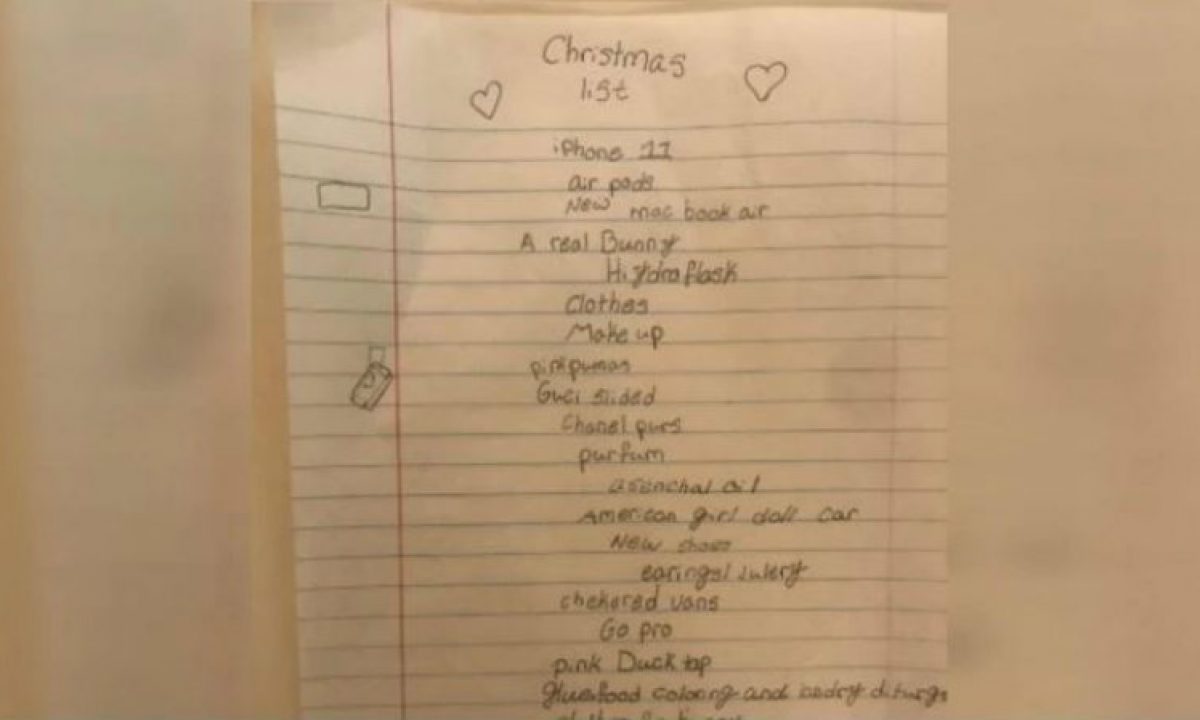 Christmas
list
iPhone 11
air pods
New mac book air
A real Bunny
Hydra flask
Clothes
Make up
pink pumas
Guci slided
Chanel purs
purfum
asenchal oil
American girl doll car
New shoes
earings/Julery
chekered vans
Go pro
pink Duck tap
glue food coloring and